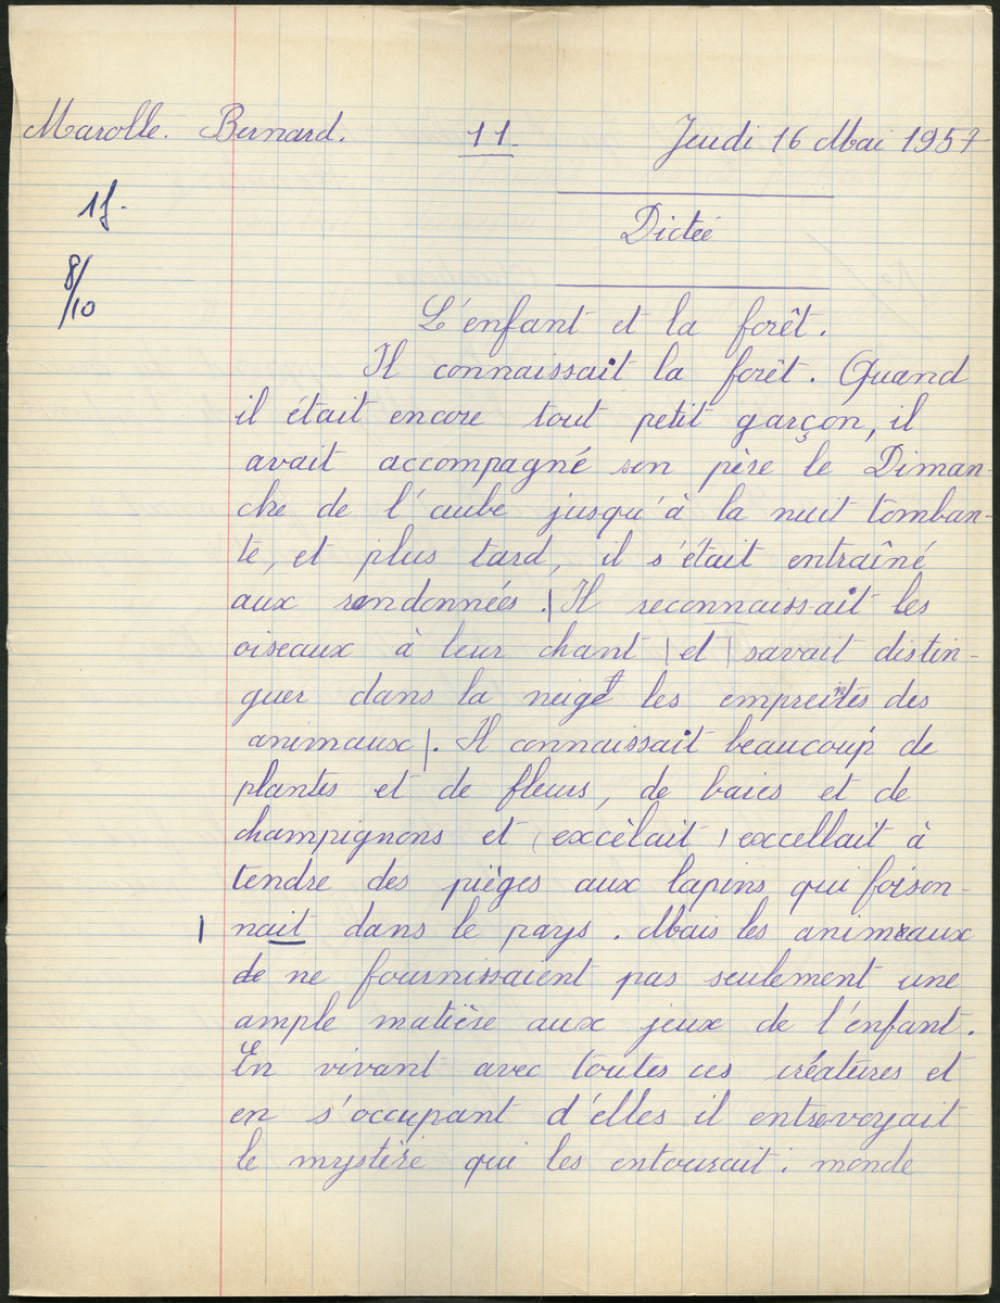 Marolle. Bernard. 11. Jeudi 16 Mai 1957
1f.
8/10
Dictée
L'enfant et la forêt.
Il connaissait la forêt. Quand
il était encore tout petit garçon, il
avait accompagné son père le Diman-
che de l'aube jusqu'à la nuit tomban-
te, et plus tard, il s'était entraîné
aux randonnées. | Il reconnaissait les
oiseaux à leur chant | et | savait distin-
guer dans la neige les empreintes des
animaux |. Il connaissait beaucoup de
plantes et de fleurs, de baies et de
champignons et (excèlait) excellait à
tendre des pièges aux lapins qui foison-
nait dans le pays. Mais les animaux
de ne fournissaient pas seulement une
ample matière aux jeux de l'enfant.
En vivant avec toutes ces créatures et
en s'occupant d'elles il entrevoyait
le mystère qui les entourait : monde